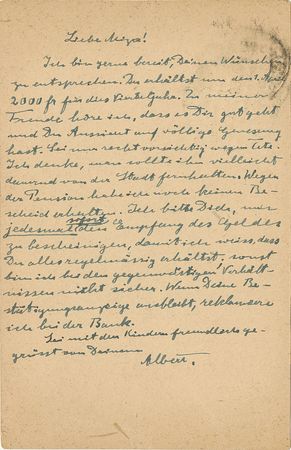 Liebe Miza!
Ich bin gerne bereit, Deinen Wünschen
zu entsprechen. Du erhältst um den 1. April
2000 fr für das Vierteljahr. Zu meiner
Freude höre ich, dass es Dir gut geht
und Du Aussicht auf völlige Genesung
hast. Sei nur recht vorsichtig wegen Tete.
Ich denke, man sollte ihn vielleicht
dauernd von der Stadt fernhalten. Wegen
der Pension habe ich noch keinen Be-
scheid erhalten. Ich bitte Dich, mir
jedesmal den Empfang des Geldes
zu bescheinigen, damit ich weiss, dass
Du alles regelmässig erhältst, sonst
bin ich bei den gegenwärtigen Verhält-
nissen nicht sicher. Wenn Deine Be-
stätigungsanzeige ausbleibt, reklamiere
ich bei der Bank.
Sei mit den Kindern freundlichst ge-
grüsst von Deinem
Albert.